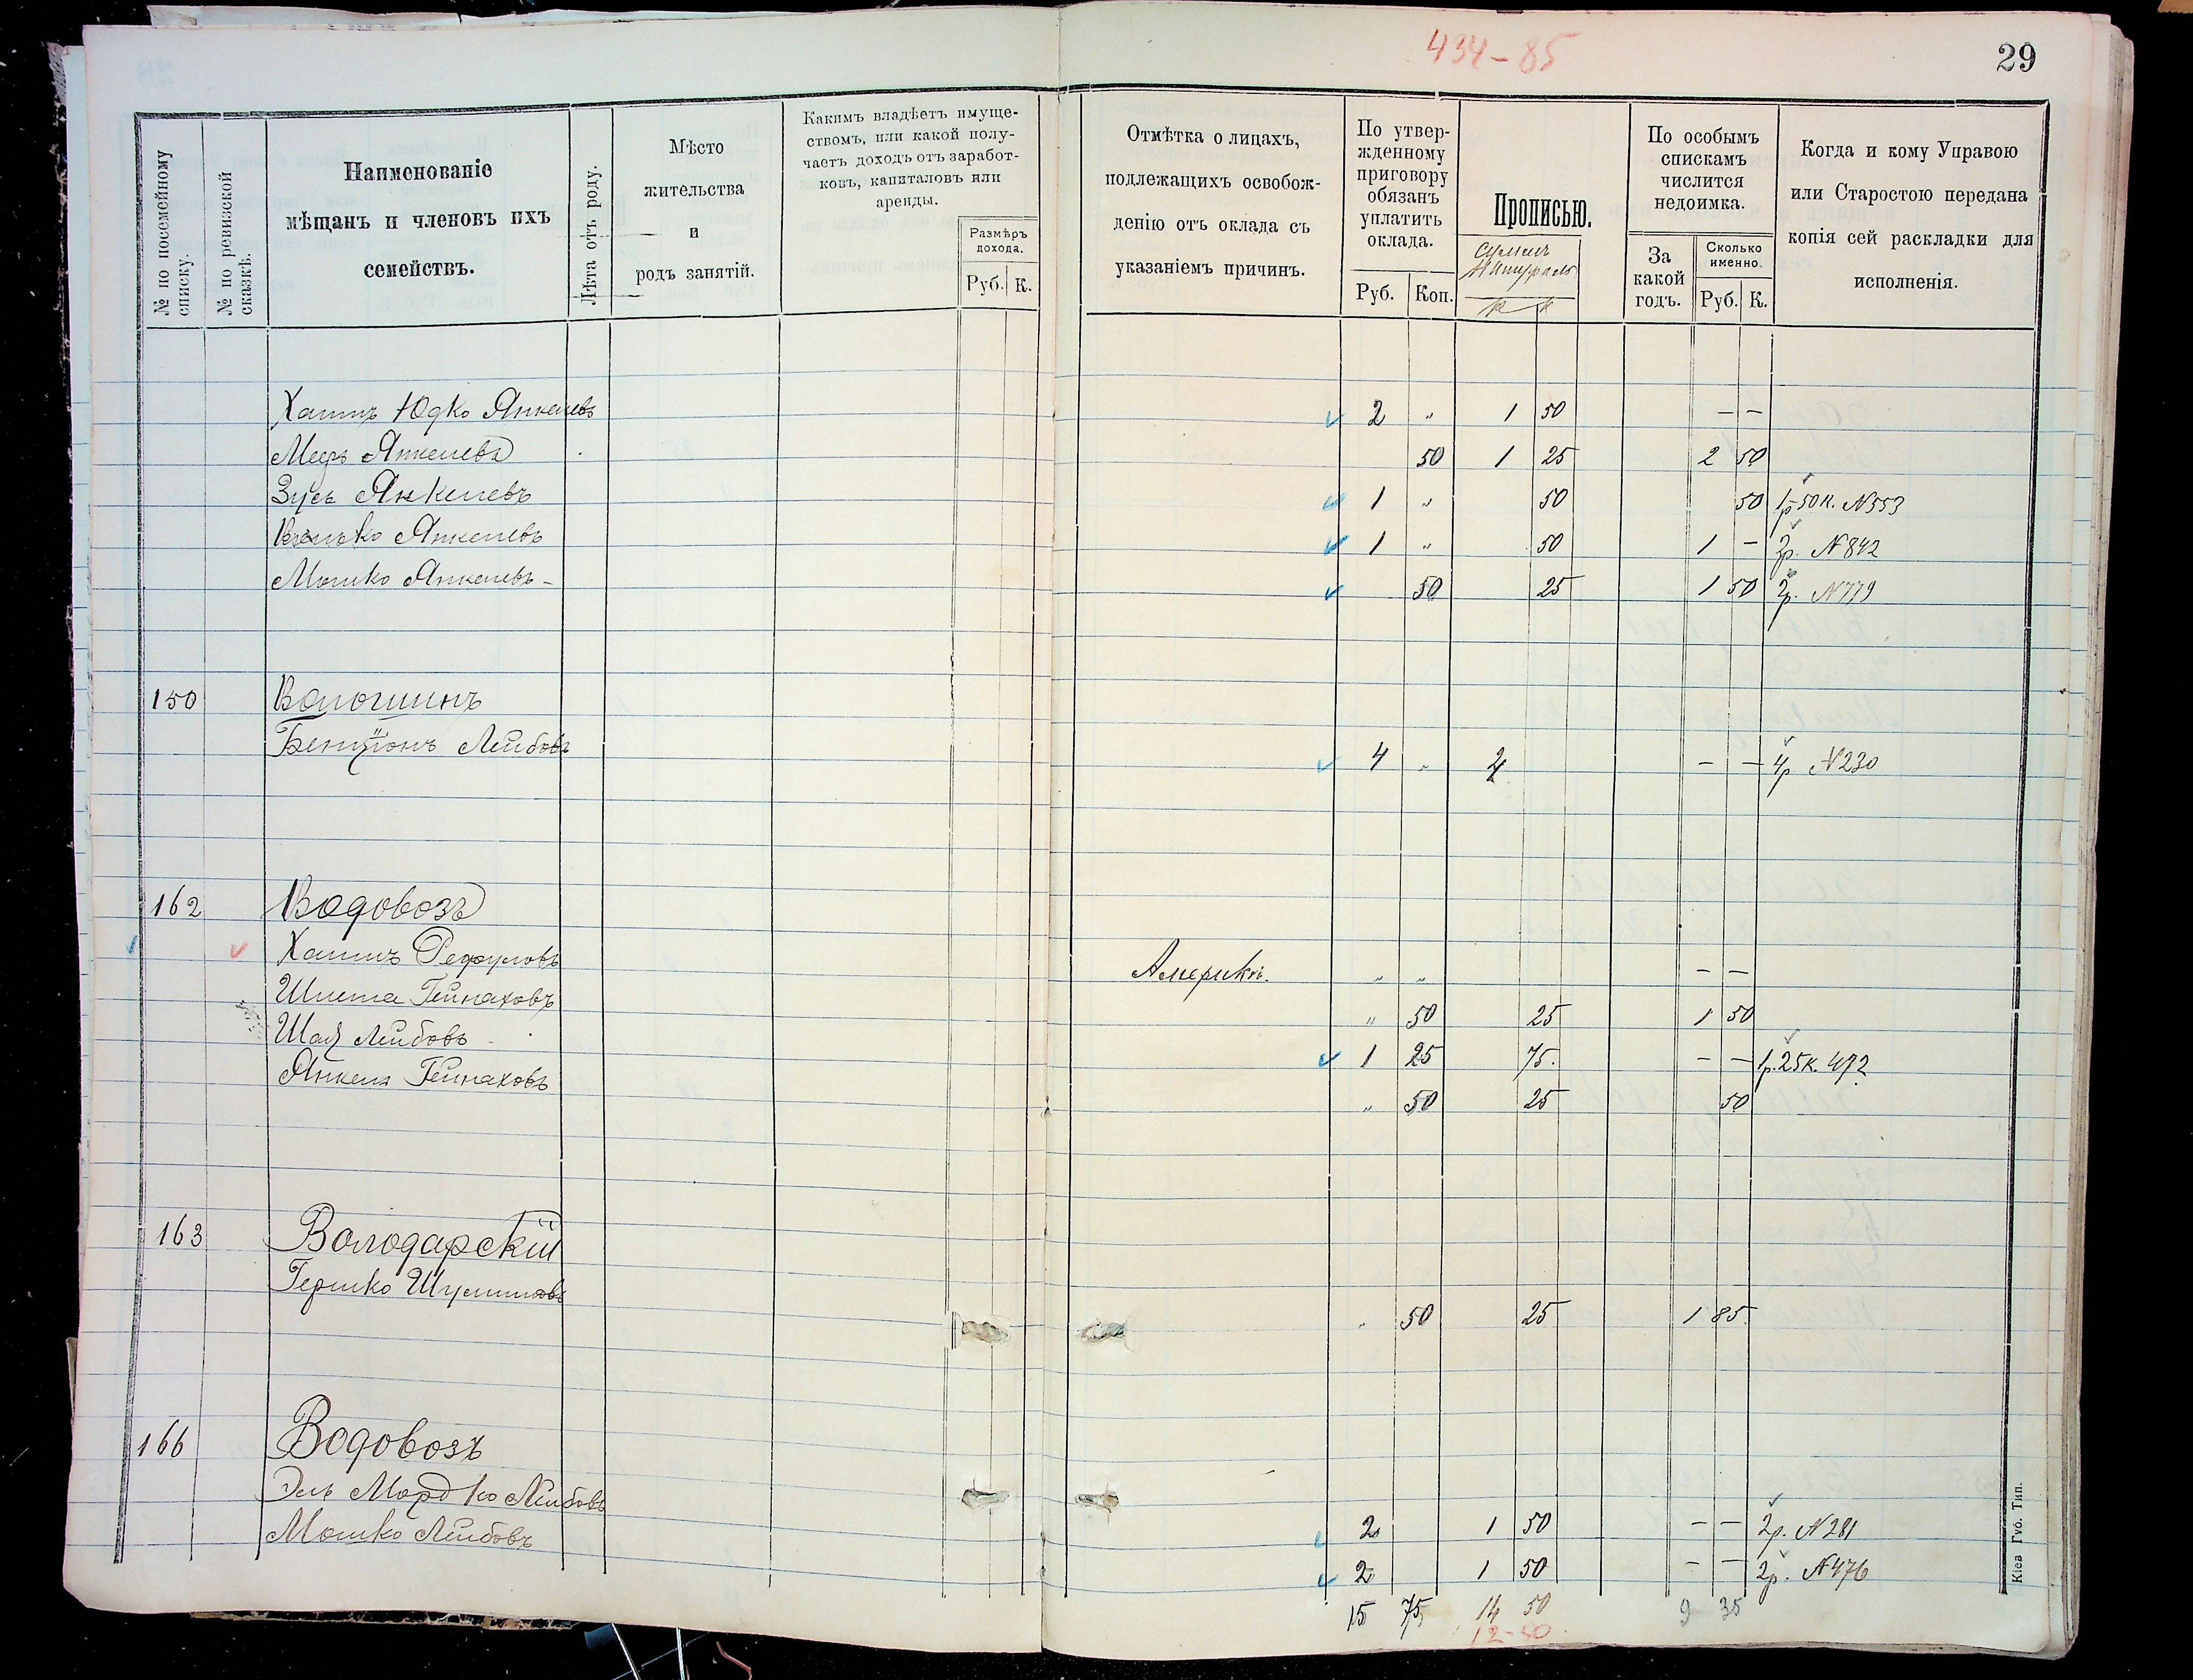 434-85
29
№ по посемейному списку.
№ по ревизской сказкѣ.
Наименованіе
мѣщанъ и членовъ ихъ
семействъ.
Лѣта отъ роду.
Мѣсто
жительства
и
родъ занятій.
Какимъ владѣетъ имуще-
ствомъ, или какой полу-
чаетъ доходъ отъ заработ-
ковъ, капиталовъ или
аренды.
Размѣръ
дохода.
Руб. К.
Отмѣтка о лицахъ,
подлежащихъ освобож-
денію отъ оклада съ
указаніемъ причинъ.
По утвер-
жденному
приговору
обязанъ
уплатить
оклада.
Руб. Коп.
Прописью.
По особымъ
спискамъ
числится
недоимка.
За
какой
годъ.
Сколько
именно.
Руб. К.
Когда и кому Управою
или Старостою передана
копія сей раскладки для
исполненія.
Хаимъ Юдко Янкелевъ 2 " 1 50 — —
Мееръ Янкелевъ 50 1 25 2 50
Зусь Янкелевъ 1 " 50 50 1р 50к. N553
Велько Янкелевъ 1 " 50 1 - 2р. N842
Мошко Янкелевъ - 50 25 1 50 2р. N779
150 Волошинъ
Бенціонъ Лейбовъ 4 " — — 4р N230
162 Водовозъ
Хаимъ Рефуловъ Америкѣ. " " — —
Гейнаховъ " 50 25 1 50
Шая Лейбовъ 1 25 75. — — 1р.25к. 472
Янкель Гейнаховъ " 50 25 50
163 Володарскій
Гершко Шулимовъ " 50 25 1 85
166 Водовозъ
Эль Мордко Лейбовъ 2 1 50 — — 2р. N281
Мошко Лейбовъ 2 1 50 — — 2р. N476
15 75 14 50 9 35
12-50
Кіев Губ. Тип.